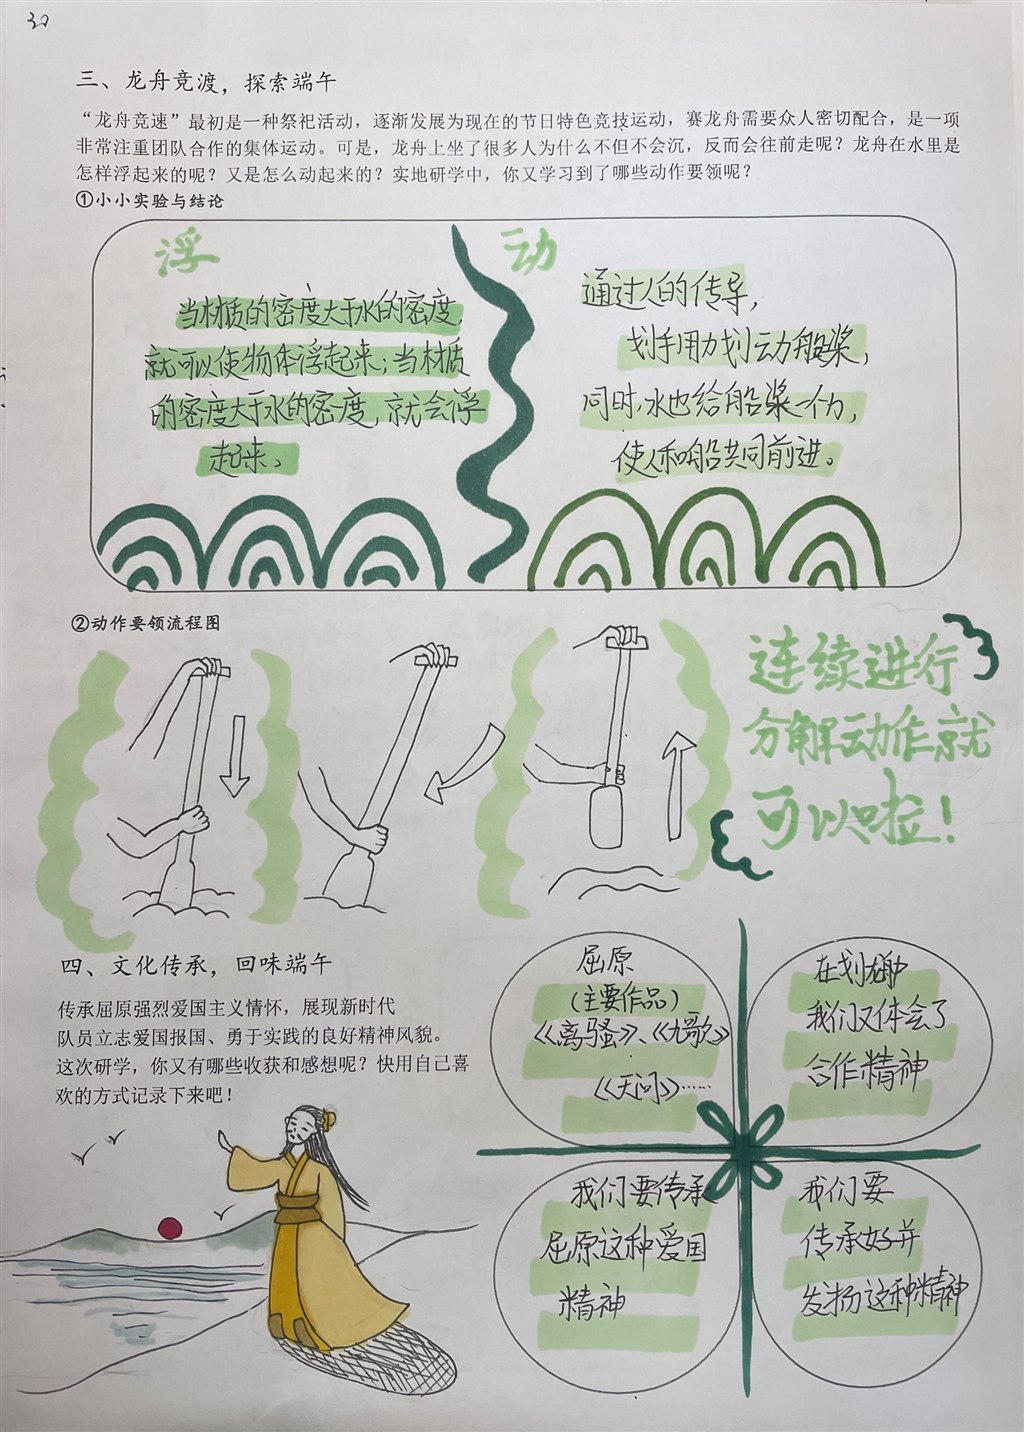 30
三、龙舟竞渡，探索端午
“龙舟竞速”最初是一种祭祀活动，逐渐发展为现在的节日特色竞技运动，赛龙舟需要众人密切配合，是一项
非常注重团队合作的集体运动。可是，龙舟上坐了很多人为什么不但不会沉，反而会往前走呢？龙舟在水里是
怎样浮起来的呢？又是怎么动起来的？实地研学中，你又学习到了哪些动作要领呢？
①小小实验与结论
浮
当材质的密度大于水的密度，
就可以使物体浮起来；当材质
的密度大于水的密度，就会浮
起来。
动
通过人的传导，
划手用力划动船桨，
同时，水也给船桨一个力，
使人和船共同前进。
②动作要领流程图
连续进行
分解动作就
可以啦！
四、文化传承，回味端午
传承屈原强烈爱国主义情怀，展现新时代
队员立志爱国报国、勇于实践的良好精神风貌。
这次研学，你又有哪些收获和感想呢？快用自己喜
欢的方式记录下来吧！
屈原
（主要作品）
《离骚》、《九歌》
《天问》……
在划龙舟中
我们又体会了
合作精神
我们要传承
屈原这种爱国
精神
我们要
传承好并
发扬这种精神